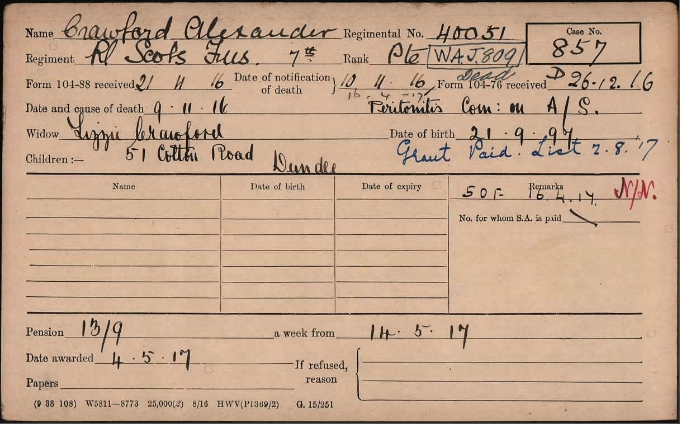 Name Crawford Alexander Regimental No. 40051 Case No. 857
Regiment Rl Scots Fus. 7th Rank Pte WAJ.809
Dead
Form 104-88 received 21 11 16 Date of notification of death 10 . 11 . 16 Form 104-76 received D 26.12.16
16 . 4 . 17
Date and cause of death 9 . 11 . 16 Peritonitis Com: on A/S.
Widow Lizzie Crawford Date of birth 21 . 9 . 97
Children :— 51 Cotton Road Dundee Grant Paid. List 2.8.'17
Name Date of birth Date of expiry Remarks
50F 16.4.17. N/N.
No. for whom S.A. is paid
Pension 13/9 a week from 14 . 5 . 17
Date awarded 4 . 5 . 17 If refused, reason
Papers
(9 38 108) W5811—8773 25,000(2) 8/16 HWV(P1369/2) G. 15/251